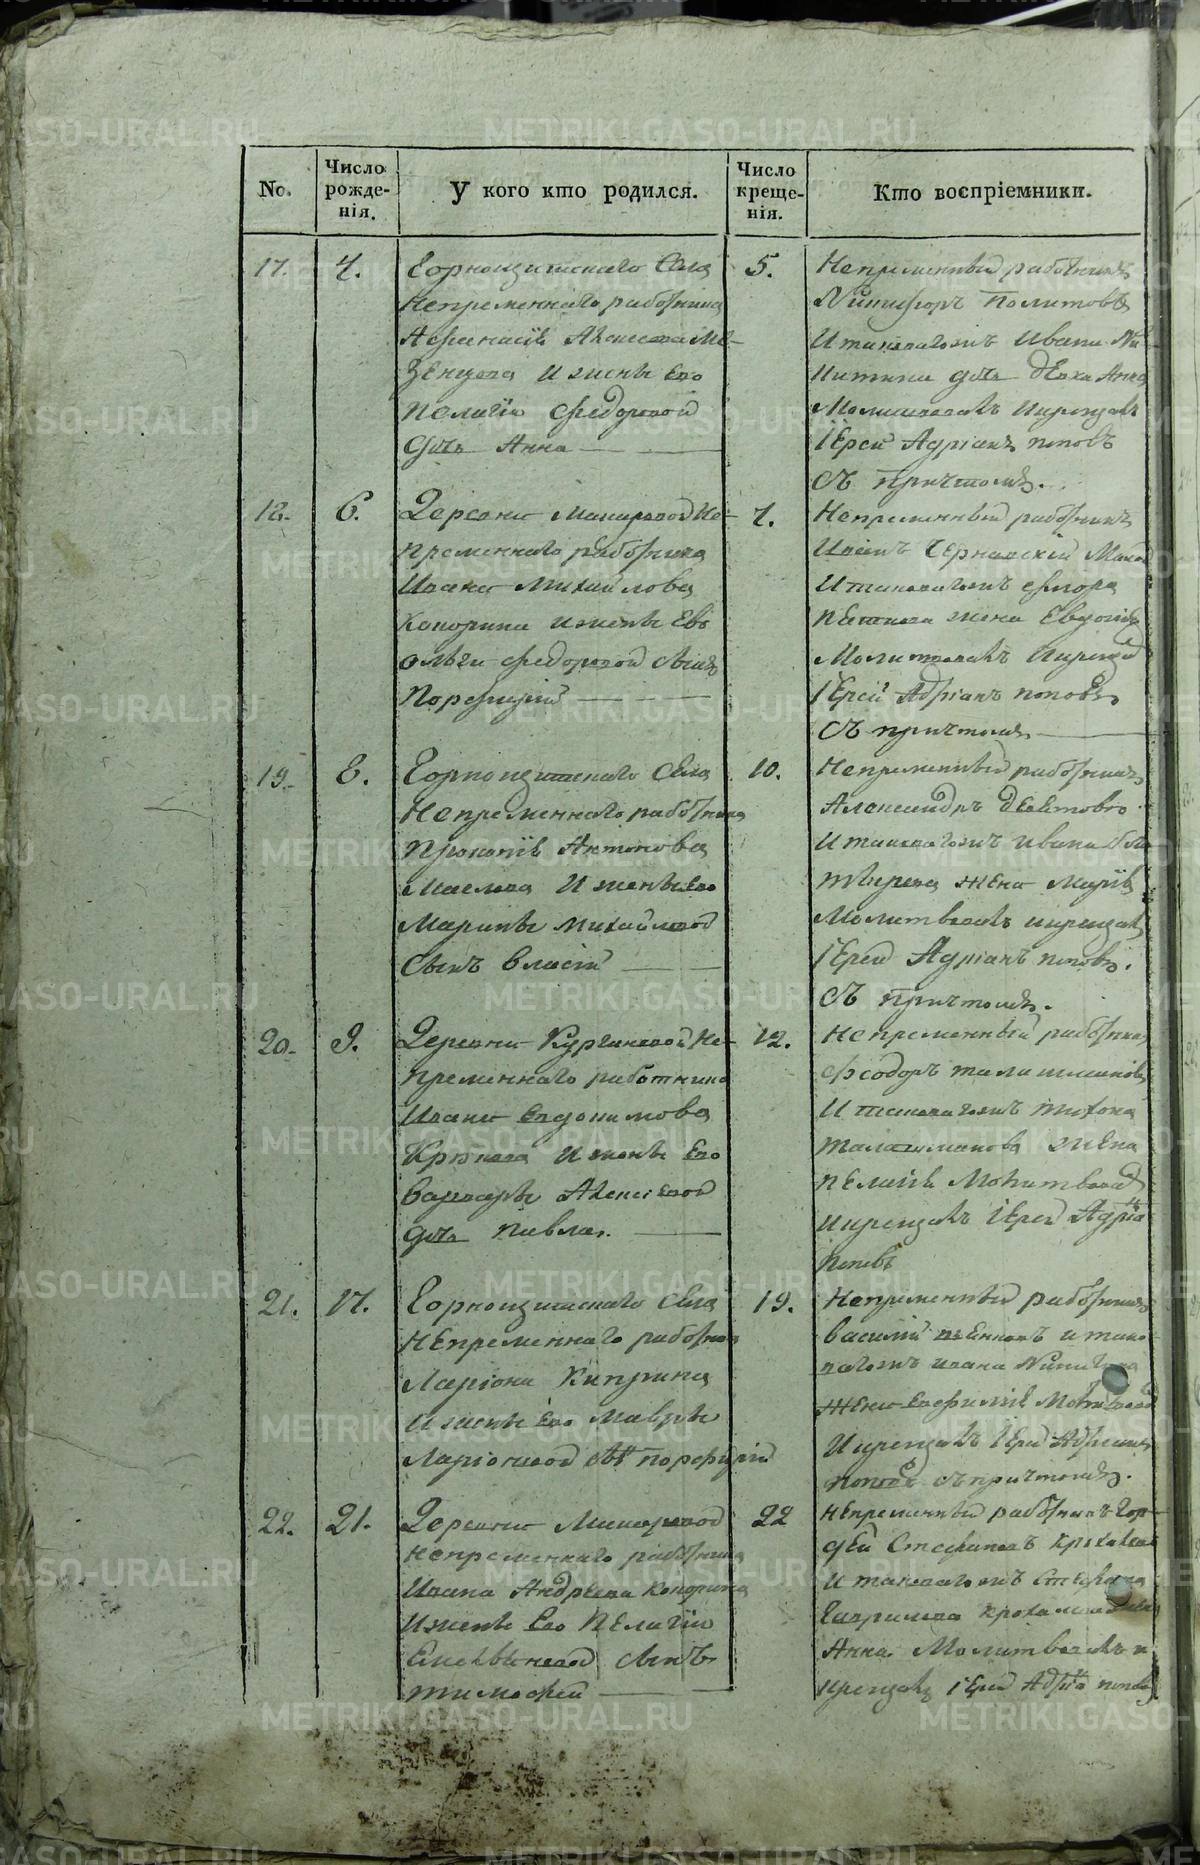 No.
Число рожде-нія.
У кого кто родился.
Число креще-нія.
Кто воспріемники.
17.
4.
Горнощитскаго Села
Непременнаго работника
Афанасія Алексеева Ме-
зенцова И жены Его
Пелагіи Федоровой
Дчь Анна
5.
Непременный работникъ
Никифоръ Политовъ
И таковагожъ Ивана Ни-
китина дчь девка Анна
Молитвовалъ И крещалъ
Іерей Адріанъ Поповъ
Съ Причтомъ.
18.
6.
Деревни Макаровой Не-
пременнаго работника
Ивана Михайлова
Конорина И жены Его
Ольги Федоровой Сынъ
Порфирій
7.
Непременный работникъ
Иванъ Чернавскій
И таковагожъ Флора
жена Евдокія
Молитвовалъ И крещалъ
Іерей Адріанъ Поповъ
Съ причтомъ
19.
8.
Горнощитскаго Села
Непременнаго работника
Прокопія Антонова
Маслова И жены Его
Марины Михайловой
Сынъ Власій
10.
Непременный работникъ
Александръ
И таковагожъ Ивана
жена Марія
Молитвовалъ и крещалъ
Іерей Адріанъ Поповъ.
Съ Причтомъ.
20.
9.
Деревни Кургановой Не-
пременнаго работника
Ивана Евдокимова
Крюкова И жены Его
Варвары Алексіевой
дчь Павла.
12.
Непременный работникъ
Феодоръ Талашмановъ
И таковагожъ Тихона
Талашманова жена
Пелагія Молитвовалъ
И крещалъ Іерей Адріа
Поповъ
21.
17.
Горнощитскаго Села
Непременнаго работника
Ларіона Киприна
И жены Его Мавры
Ларіоновой Сынъ Порфирій
19.
Непременный работникъ
Василий и тако-
вагожъ Ивана
жена Евфимія Молитвовалъ
И крещалъ Іерей Адріанъ
Поповъ Съ причтомъ.
22.
21.
Деревни Макаровой
Непременнаго работника
Ивана Андреева Конорина
И жены Его Пелагіи
Сынъ
Тимофей
22
Непременный работникъ Гор-
дей Стефановъ
И таковагожъ Стефана
Гаврилова
Анна. Молитвовалъ и
крещалъ Іерей Адріа Поповъ
METRIKI.GASO-URAL.RU